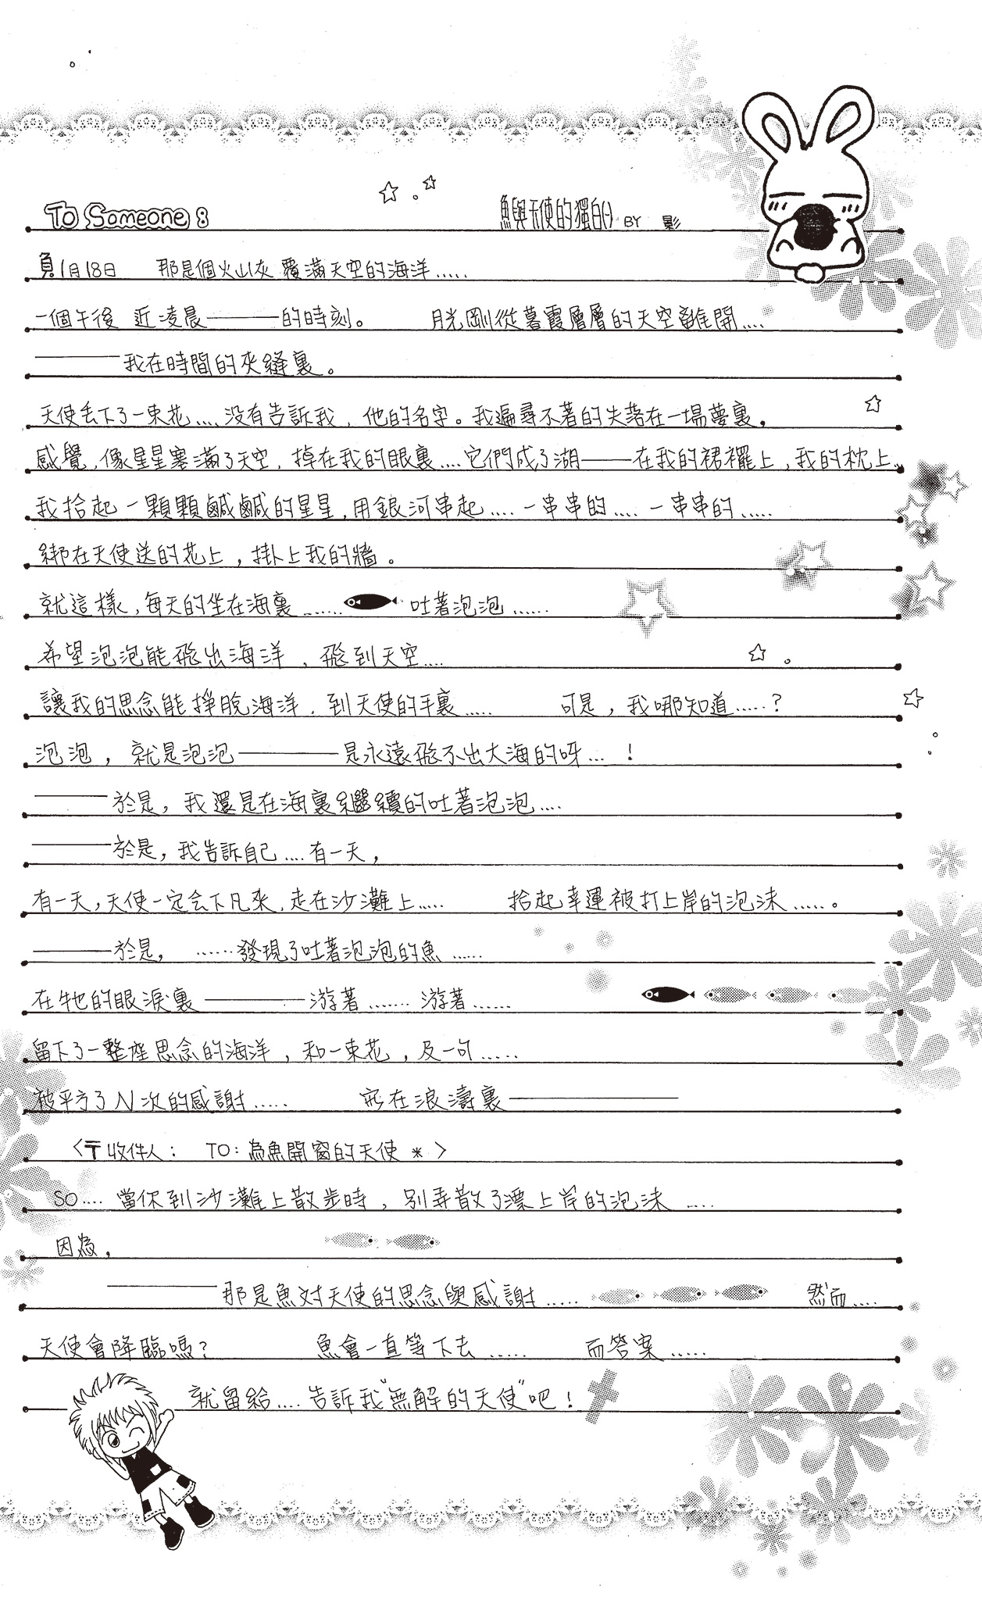 To Someone 8 魚與天使的獨白(-) BY 影
負1月18日 那是個火山灰覆滿天空的海洋.....
一個午後 近凌晨————的時刻。 月光剛從暮霞層層的天空離開....
————我在時間的夾縫裏。
天使丟下了一束花....沒有告訴我,他的名字。我遍尋不著的失落在一場夢裏。
感覺,像星星塞滿了天空,掉在我的眼裏....它們成了湖——在我的裙襬上,我的枕上..
我拾起一顆顆鹹鹹的星星,用銀河串起....一串串的....一串串的.....
綁在天使送的花上,掛上我的牆。
就這樣,每天的坐在海裏...... 吐著泡泡......
希望泡泡能飛出海洋,飛到天空....
讓我的思念能掙脫海洋,到天使的手裏..... 可是,我哪知道.....?
泡泡,就是泡泡————是永遠飛不出大海的呀... !
————於是,我還是在海裏繼續的吐著泡泡....
————於是,我告訴自己....有一天,
有一天,天使一定会下凡來,走在沙灘上..... 拾起幸運被打上岸的泡沫.....。
————於是, ......發現了吐著泡泡的魚......
在牠的眼淚裏————游著.......游著......
留下了一整座思念的海洋,和一束花,及一句.....
被平方了N次的感謝..... 死在浪濤裏————
〈〒收件人: TO:為魚開窗的天使 * 〉
SO.... 當你到沙灘上散步時,別弄散了漂上岸的泡沫 .....
因為,
————那是魚对天使的思念與感謝..... 然而....
天使會降臨嗎? 魚會一直等下去...... 而答案.....
就留給....告訴我"無解的天使"吧!